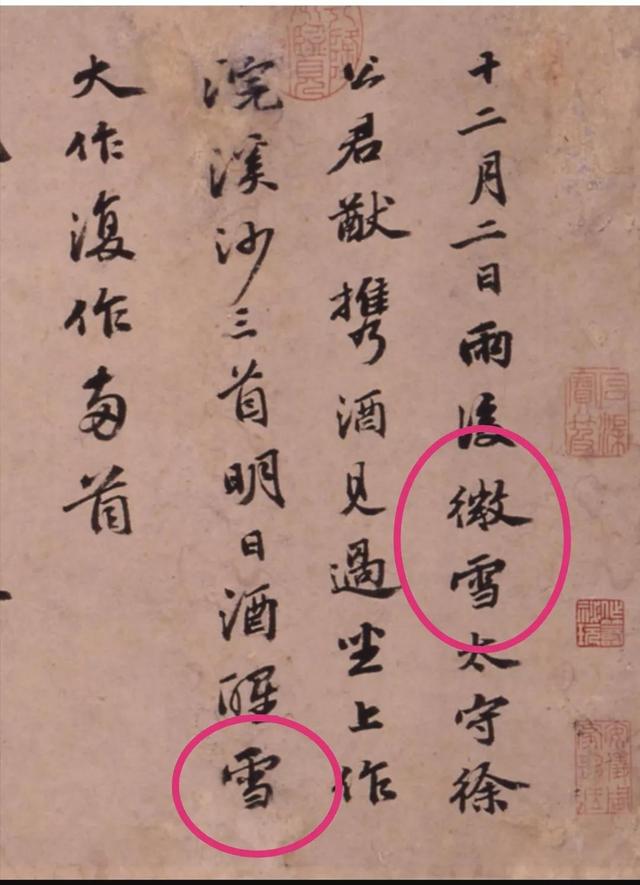 十二月二日雨後微雪太守徐
公君猷携酒見過坐上作
浣溪沙三首明日酒醒雪
大作復作两首